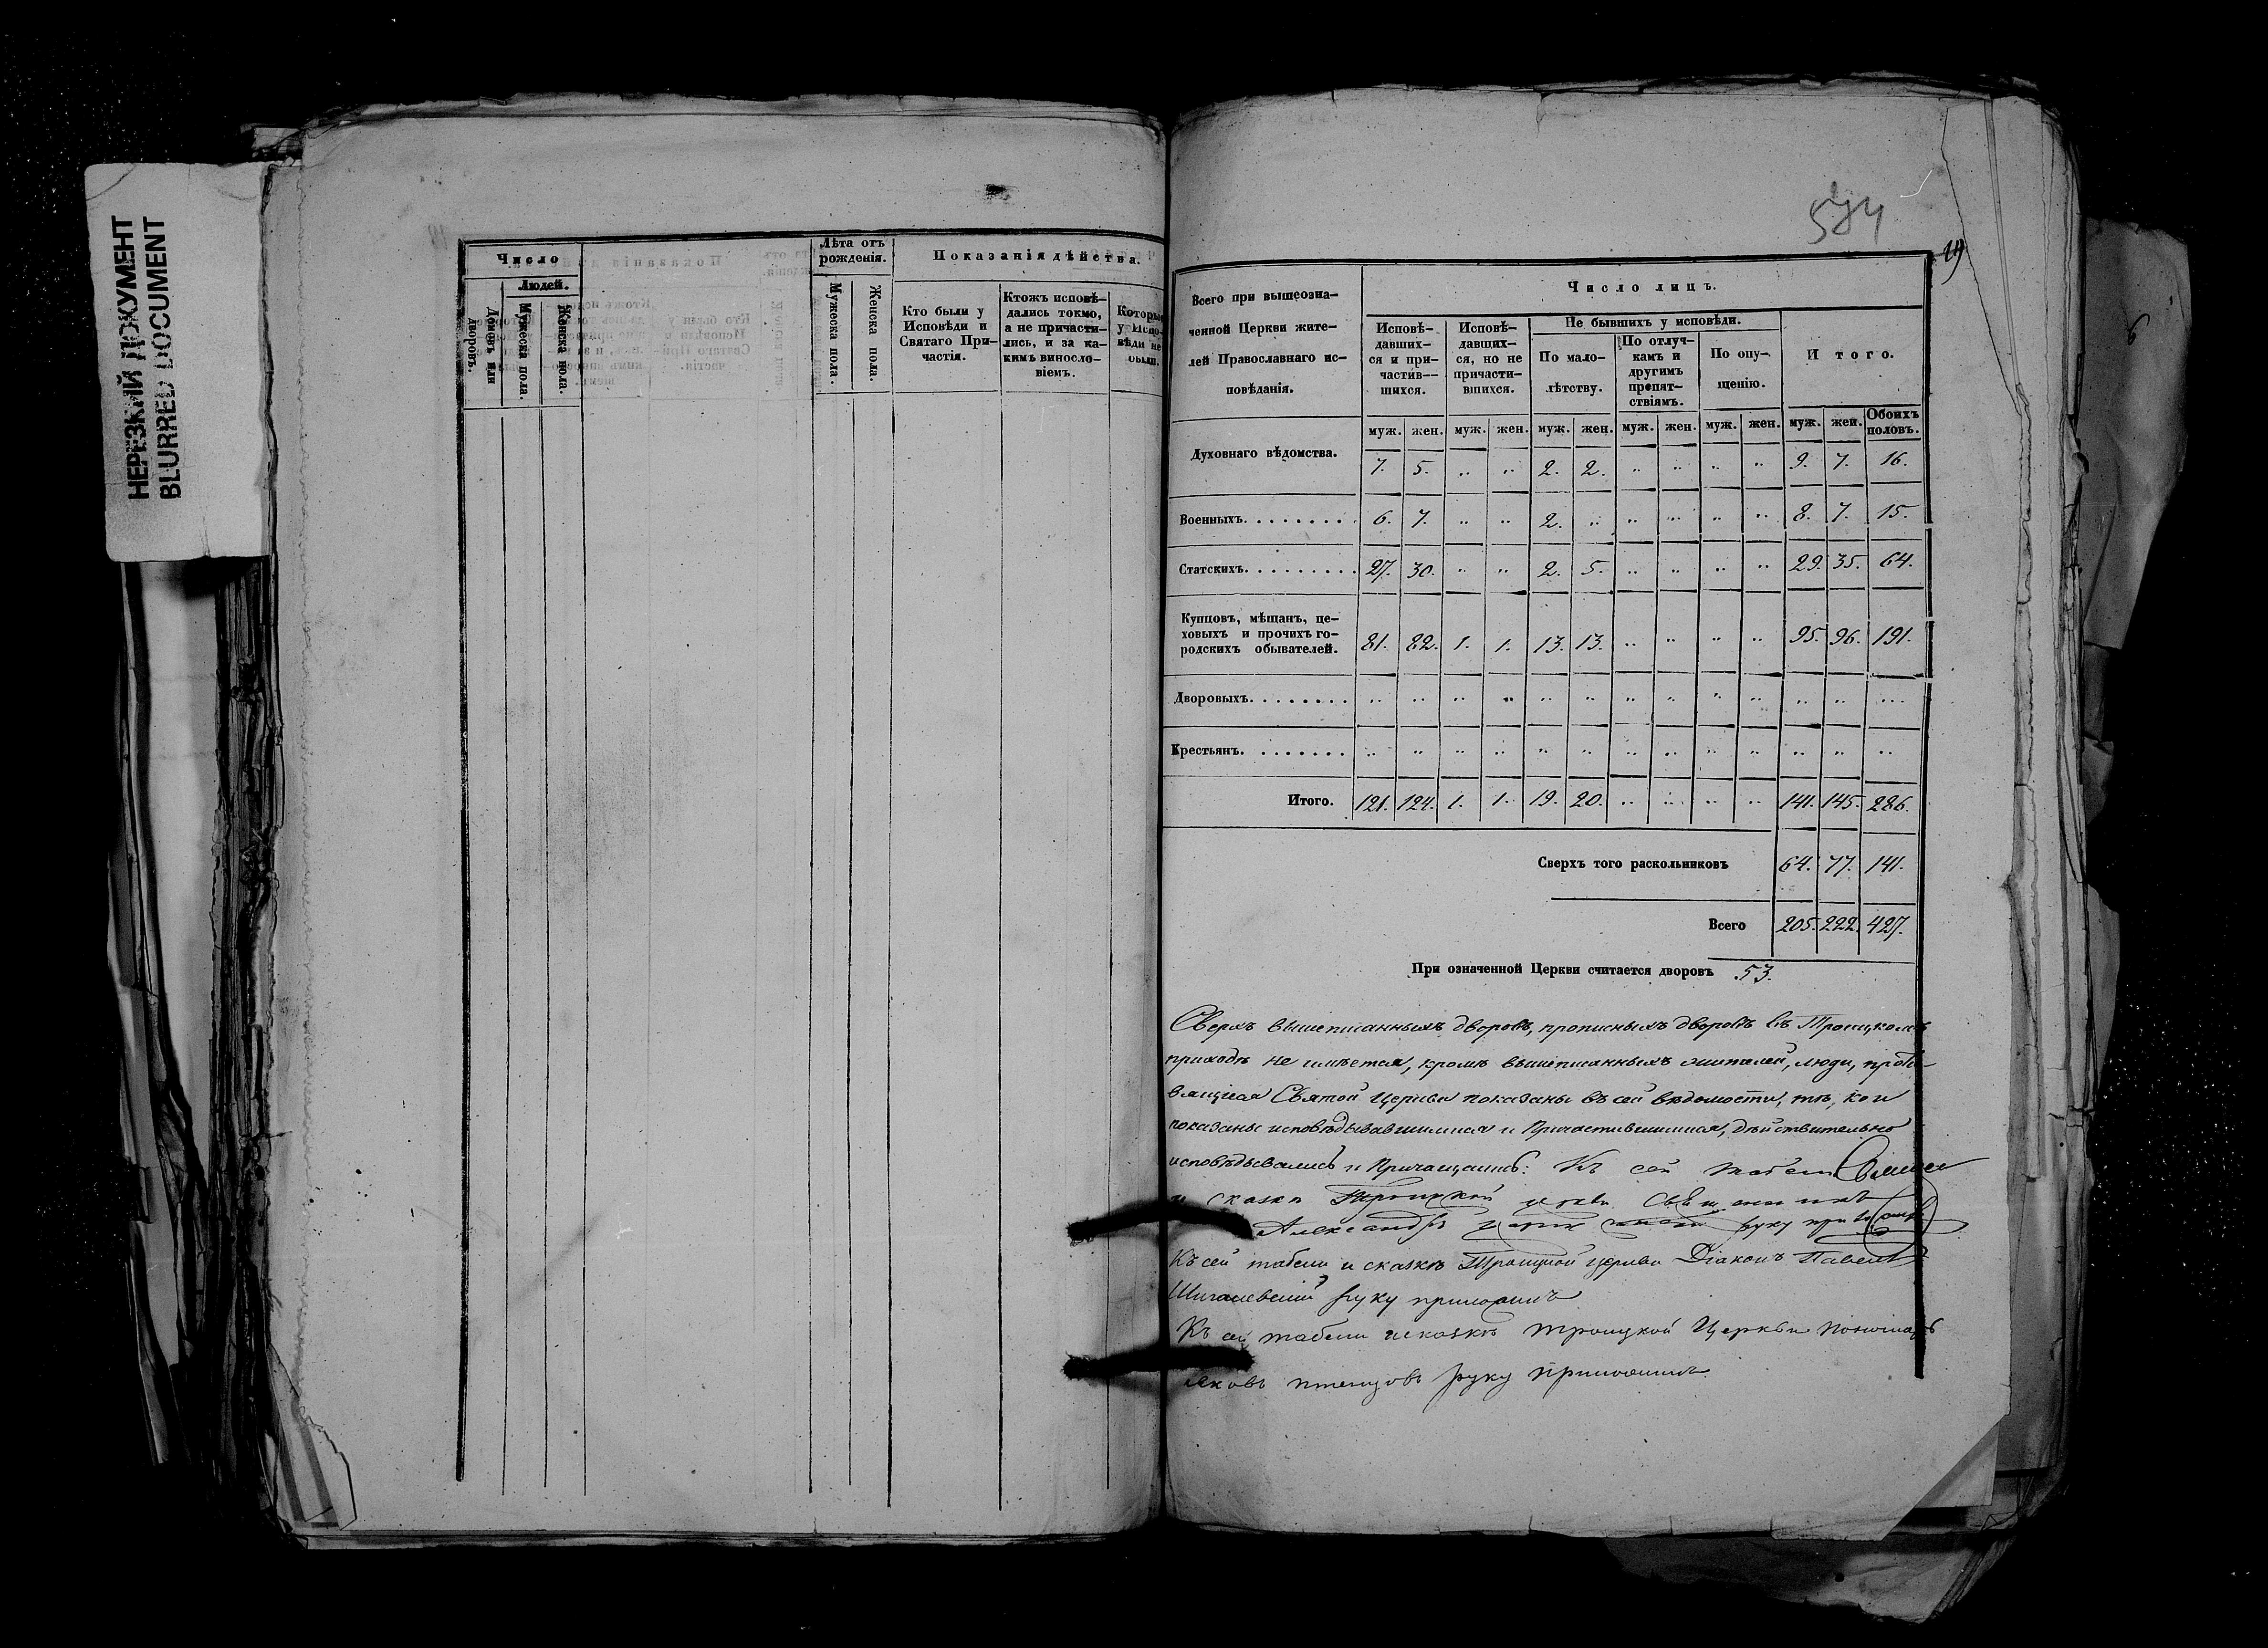 НЕРЕЗКИЙ ДОКУМЕНТ
BLURRED DOCUMENT
Число
Людей.
Домовъ или дворовъ.
Мужеска пола.
Женска пола.
Лѣта отъ рожденія.
Мужеска пола.
Женска пола.
Показанія дѣйства.
Кто были у Исповѣди и Святаго При-
частія.
Ктожъ исповѣ-
дались токмо,
а не причасти-
лись, и за ка-
кимъ виносло-
віемъ.
Которые
у Испо-
вѣди не
были.
574
19
6
Всего при вышеозна-
ченной Церкви жите-
лей Православнаго ис-
повѣданія.
Число лицъ.
Исповѣ-
давших-
ся и при-
частив-
шихся.
Исповѣ-
давших-
ся, но не
причасти-
вшихся.
Не бывшихъ у исповѣди.
По мало-
лѣтству.
По отлуч-
камъ и
другимъ
препят-
ствіямъ.
По опу-
щенію.
Итого.
муж. жен. муж. жен. муж. жен. муж. жен. муж. жен. муж. жен. Обоихъ половъ.
Духовнаго вѣдомства. 7. 5. „ „ 2. 2. „ „ „ „ 9. 7. 16.
Военныхъ........ 6. 7. „ „ 2. „ „ „ „ „ 8. 7. 15.
Статскихъ......... 27. 30. „ „ 2. 5. „ „ „ „ 29. 35. 64.
Купцовъ, мѣщанъ, це-
ховыхъ и прочихъ го-
родскихъ обывателей. 81. 82. 1. 1. 13. 13. „ „ „ „ 95. 96. 191.
Дворовыхъ........ „ „ „ „ „ „ „ „ „ „ „ „ „
Крестьянъ. ....... „ „ „ „ „ „ „ „ „ „ „ „ „
Итого. 121. 124. 1. 1. 19. 20. „ „ „ „ 141. 145. 286.
Сверхъ того раскольниковъ 64. 77. 141.
Всего 205. 222. 427.
При означенной Церкви считается дворовъ 53.
Сверхъ вышеписанныхъ дворовъ, прописныхъ дворовъ въ Троицкомъ
приходѣ не имѣется, кромѣ вышеписанныхъ жителей, люди, проти-
вящіеся Святой Церкви показаны въ сей вѣдомости, тѣ, кои
показаны исповѣдывавшимися и Причастившимися, дѣйствительно
исповѣдывались и Причащались: Къ сей табели
и сказкѣ Троицкой церкви Священникъ
Александръ руку приложилъ
Къ сей табели и сказкѣ Троицкой церкви Діаконъ Павелъ
руку приложилъ
Къ сей табели и сказкѣ Троицкой Церкви пономарь
Птенцовъ руку приложилъ